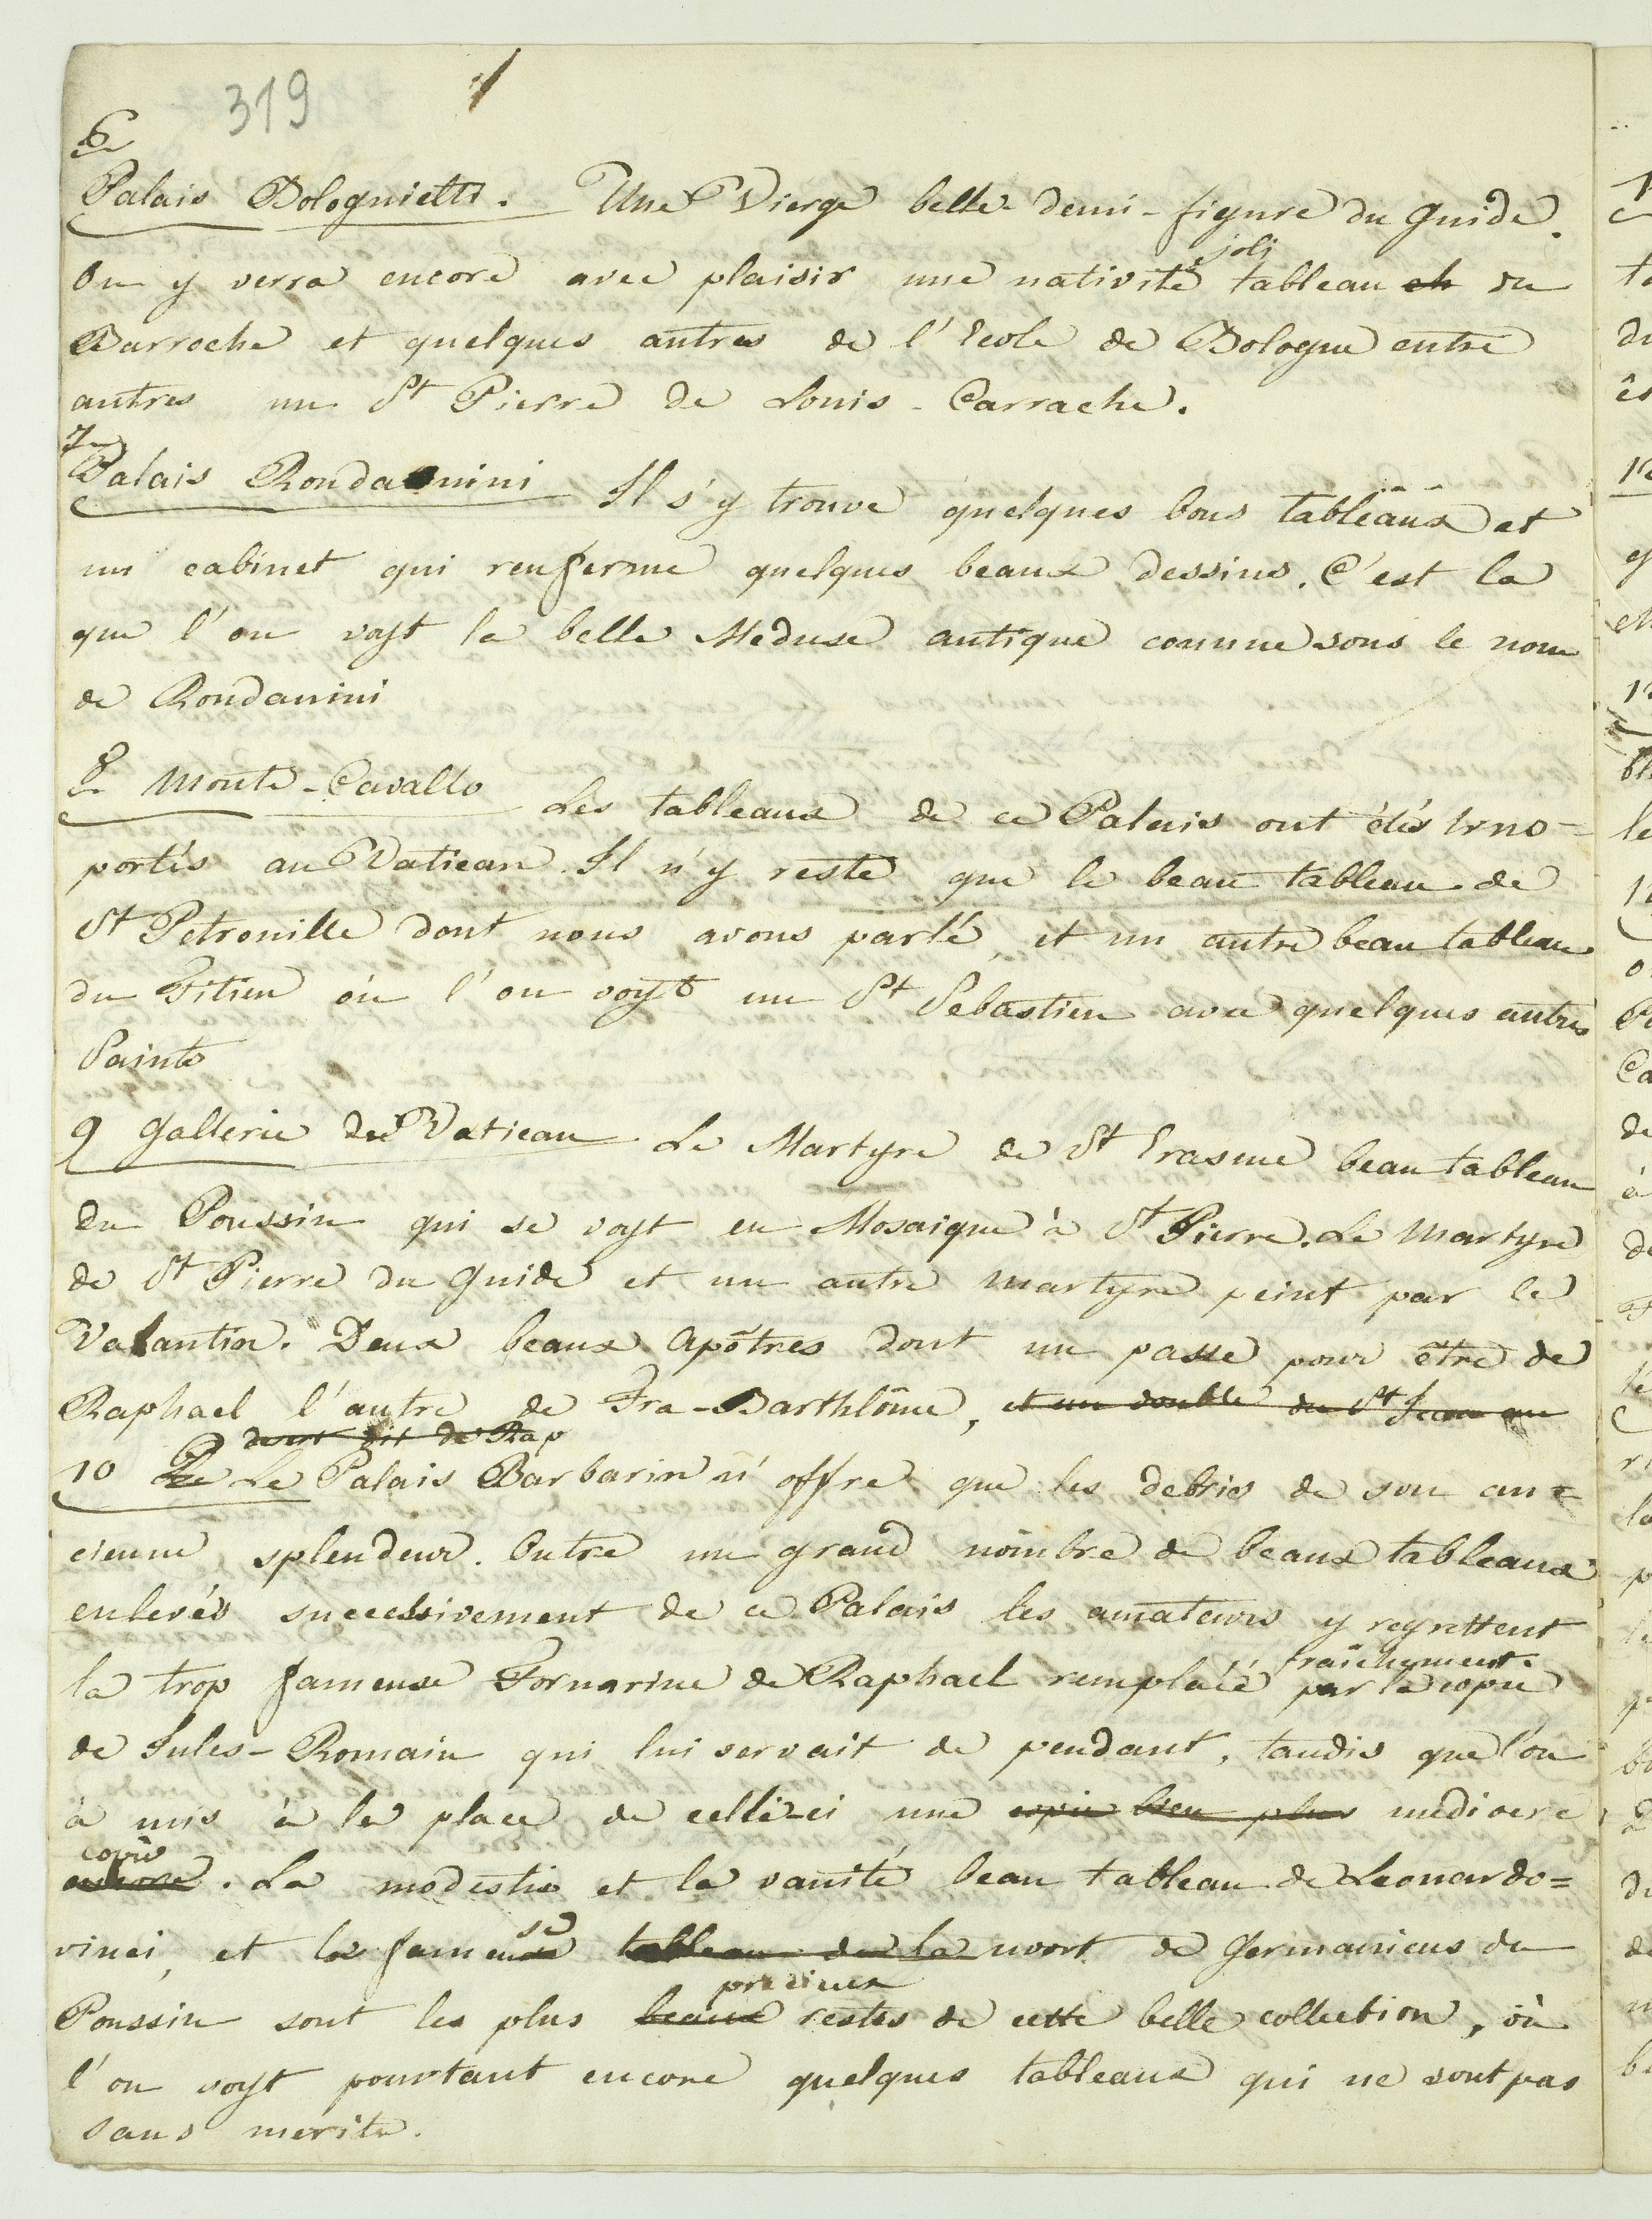 319
6
Palais Bolognietti. Une Vierge belle demi-figure du Guide.
On y verra encore avec plaisir une nativité joli tableau ch du
Barroche et quelques autres de l'Ecole de Bologne entre
autres un St Pierre de Louis-Carrache.
7
Palais Rondanini Il s'y trouve quelques bons tableaux et
un cabinet qui renferme quelques beaux dessins. C'est la
que l'on voyt la belle Meduse antique connue sous le nom
de Rondanini
8 Monte-Cavallo Les tableaux de ce Palais ont étés trns=
portés au Vatican. Il n'y reste que le beau tableau de
St Petronille dont nous avons parlé, et un autre beau tableau
du Titien òu l'on voyt un St Sebastien avec quelques autres
Saints
9 Gallerie du Vatican Le Martyre de St Erasme beau tableau
du Poussin qui se voyt en Mosaique à St Pierre. Le Martyre
de St Pierre du Guide et un autre martyre peint par le
Valantin. Deux beaux Apôtres dont un passe pour être de
Raphael l'autre de Fra-Barthlôme, et un double du St Jean au
desert dit de Rap
10 Le Le Palais Barbarin n'offre que les debris de son an=
cienne splendeur. Outre un grand nombre de beaux tableaux
enlevés successivement de ce Palais les amateurs y regrettent
la trop fameuse Fornarine de Raphael remplacé fraîchement par la copie
de Jules-Romain qui lui servait de pendant, tandis que l'on
à mis à la place de celle-ci une copie bien plus mediocre
copie encore. La modestie et la vanité beau tableau de Leonardo=
vinci, et la fameuse tableau de la mort de Germanicus du
Poussin sont les plus beaux precieux restes de cette belle collection, où
l'on voyt pourtant encore quelques tableaux qui ne sont pas
sans merite.